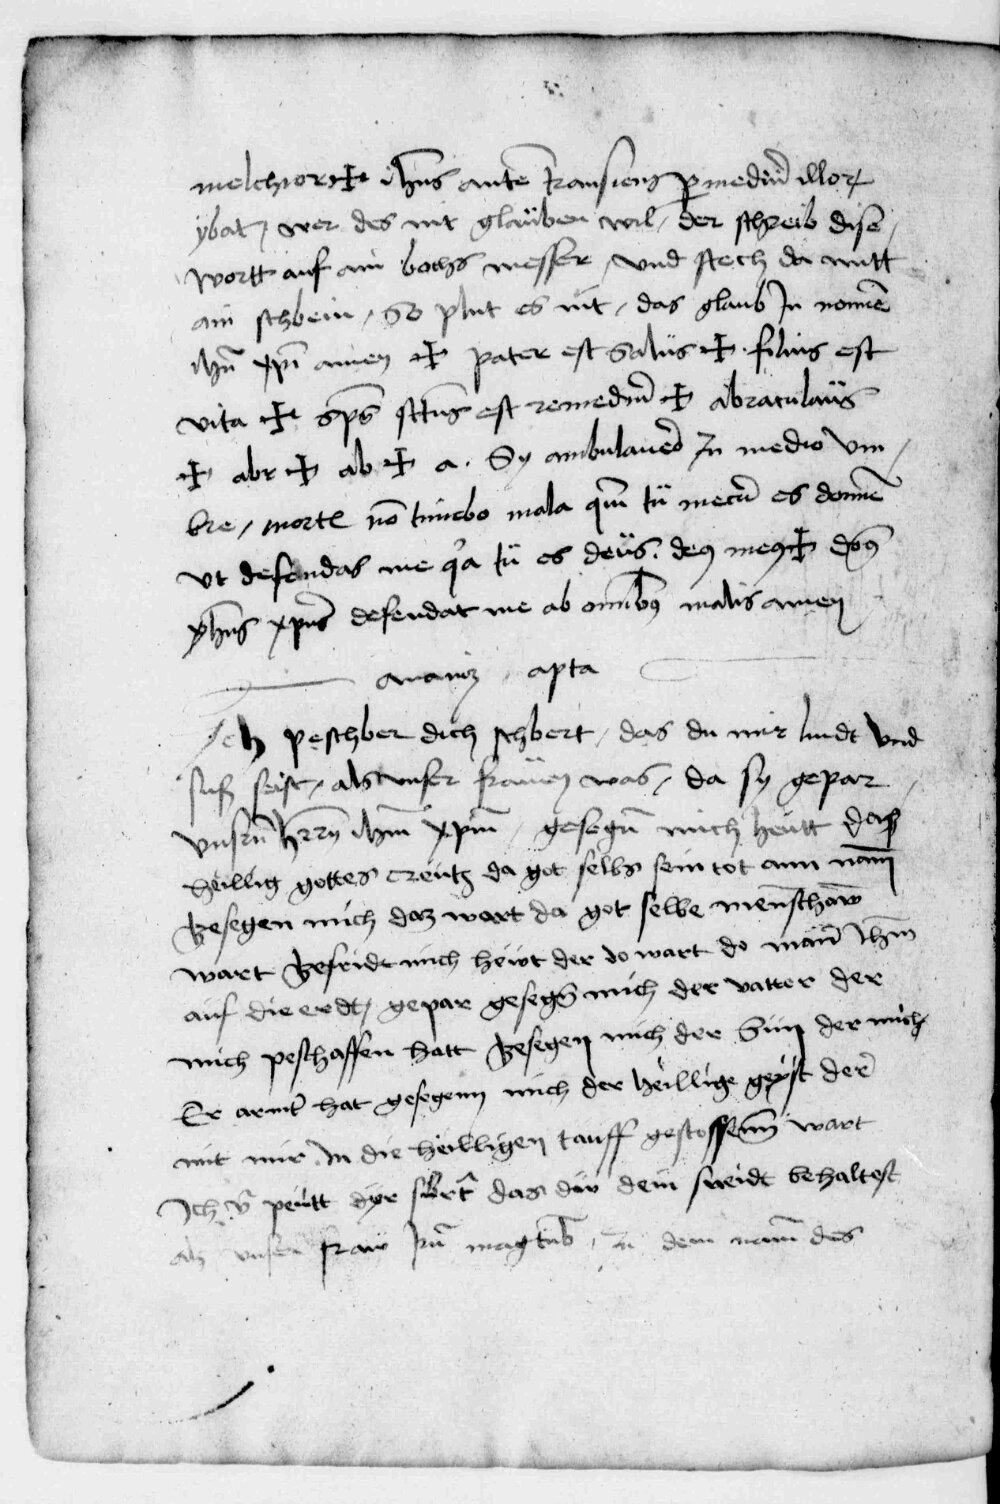 melchior ✠ ihūs autē transiens p mediū illoꝝ
ybat / wer des nit glaüben wil / der schreib dise /
wortt auf ain bochs messer / und stech da mitt
ain schbein / So plut es nit / das glaub In nomīe
ihū xpī amen ✠ pater est Salüs ✠ filius est
vita ✠ spūs sctūs est remediū ✠ abraculaüs
✠ abr ✠ ab ✠ a . Sy ambulauerō In medio vm /
bre / mortꝭ nō timebo mala qm̄ tü mecū es domīe
vt defendas me qa tü es deüs . deꝰ meꝰ ✠ dn̄s
yhūs xpūs defendat me ab omībꝰ malis amen
apta
Ich peschber dich schbert / das du mir lindt Vnd
suß seist / als vnser fraüen was / da sy gepar /
vnsrn̄ herrn ihm̄ xpm̄ / gesegn̄ mich heütt das
heillig gottes creütz da got selbs sein tot ann nam̄
Gesegen mich daz wort da got selbe menschaw̄
wart Gefridt mich heüt der do wart do mariē ihm̄
aüf die erdt / gepar gesegn̄ mich der vatter der
mich peschaffen hatt Gesegen mich der Sün der mich
Er armt hat gesegenn mich der heillige geÿst der
mit mir In die heilligen tauff gestossenn̄ wart
Ich v̄ peütt dyr sbert das dw dein sneidt behaltest
als vnser fraw Irn̄ magtub / In dem nam̄ des